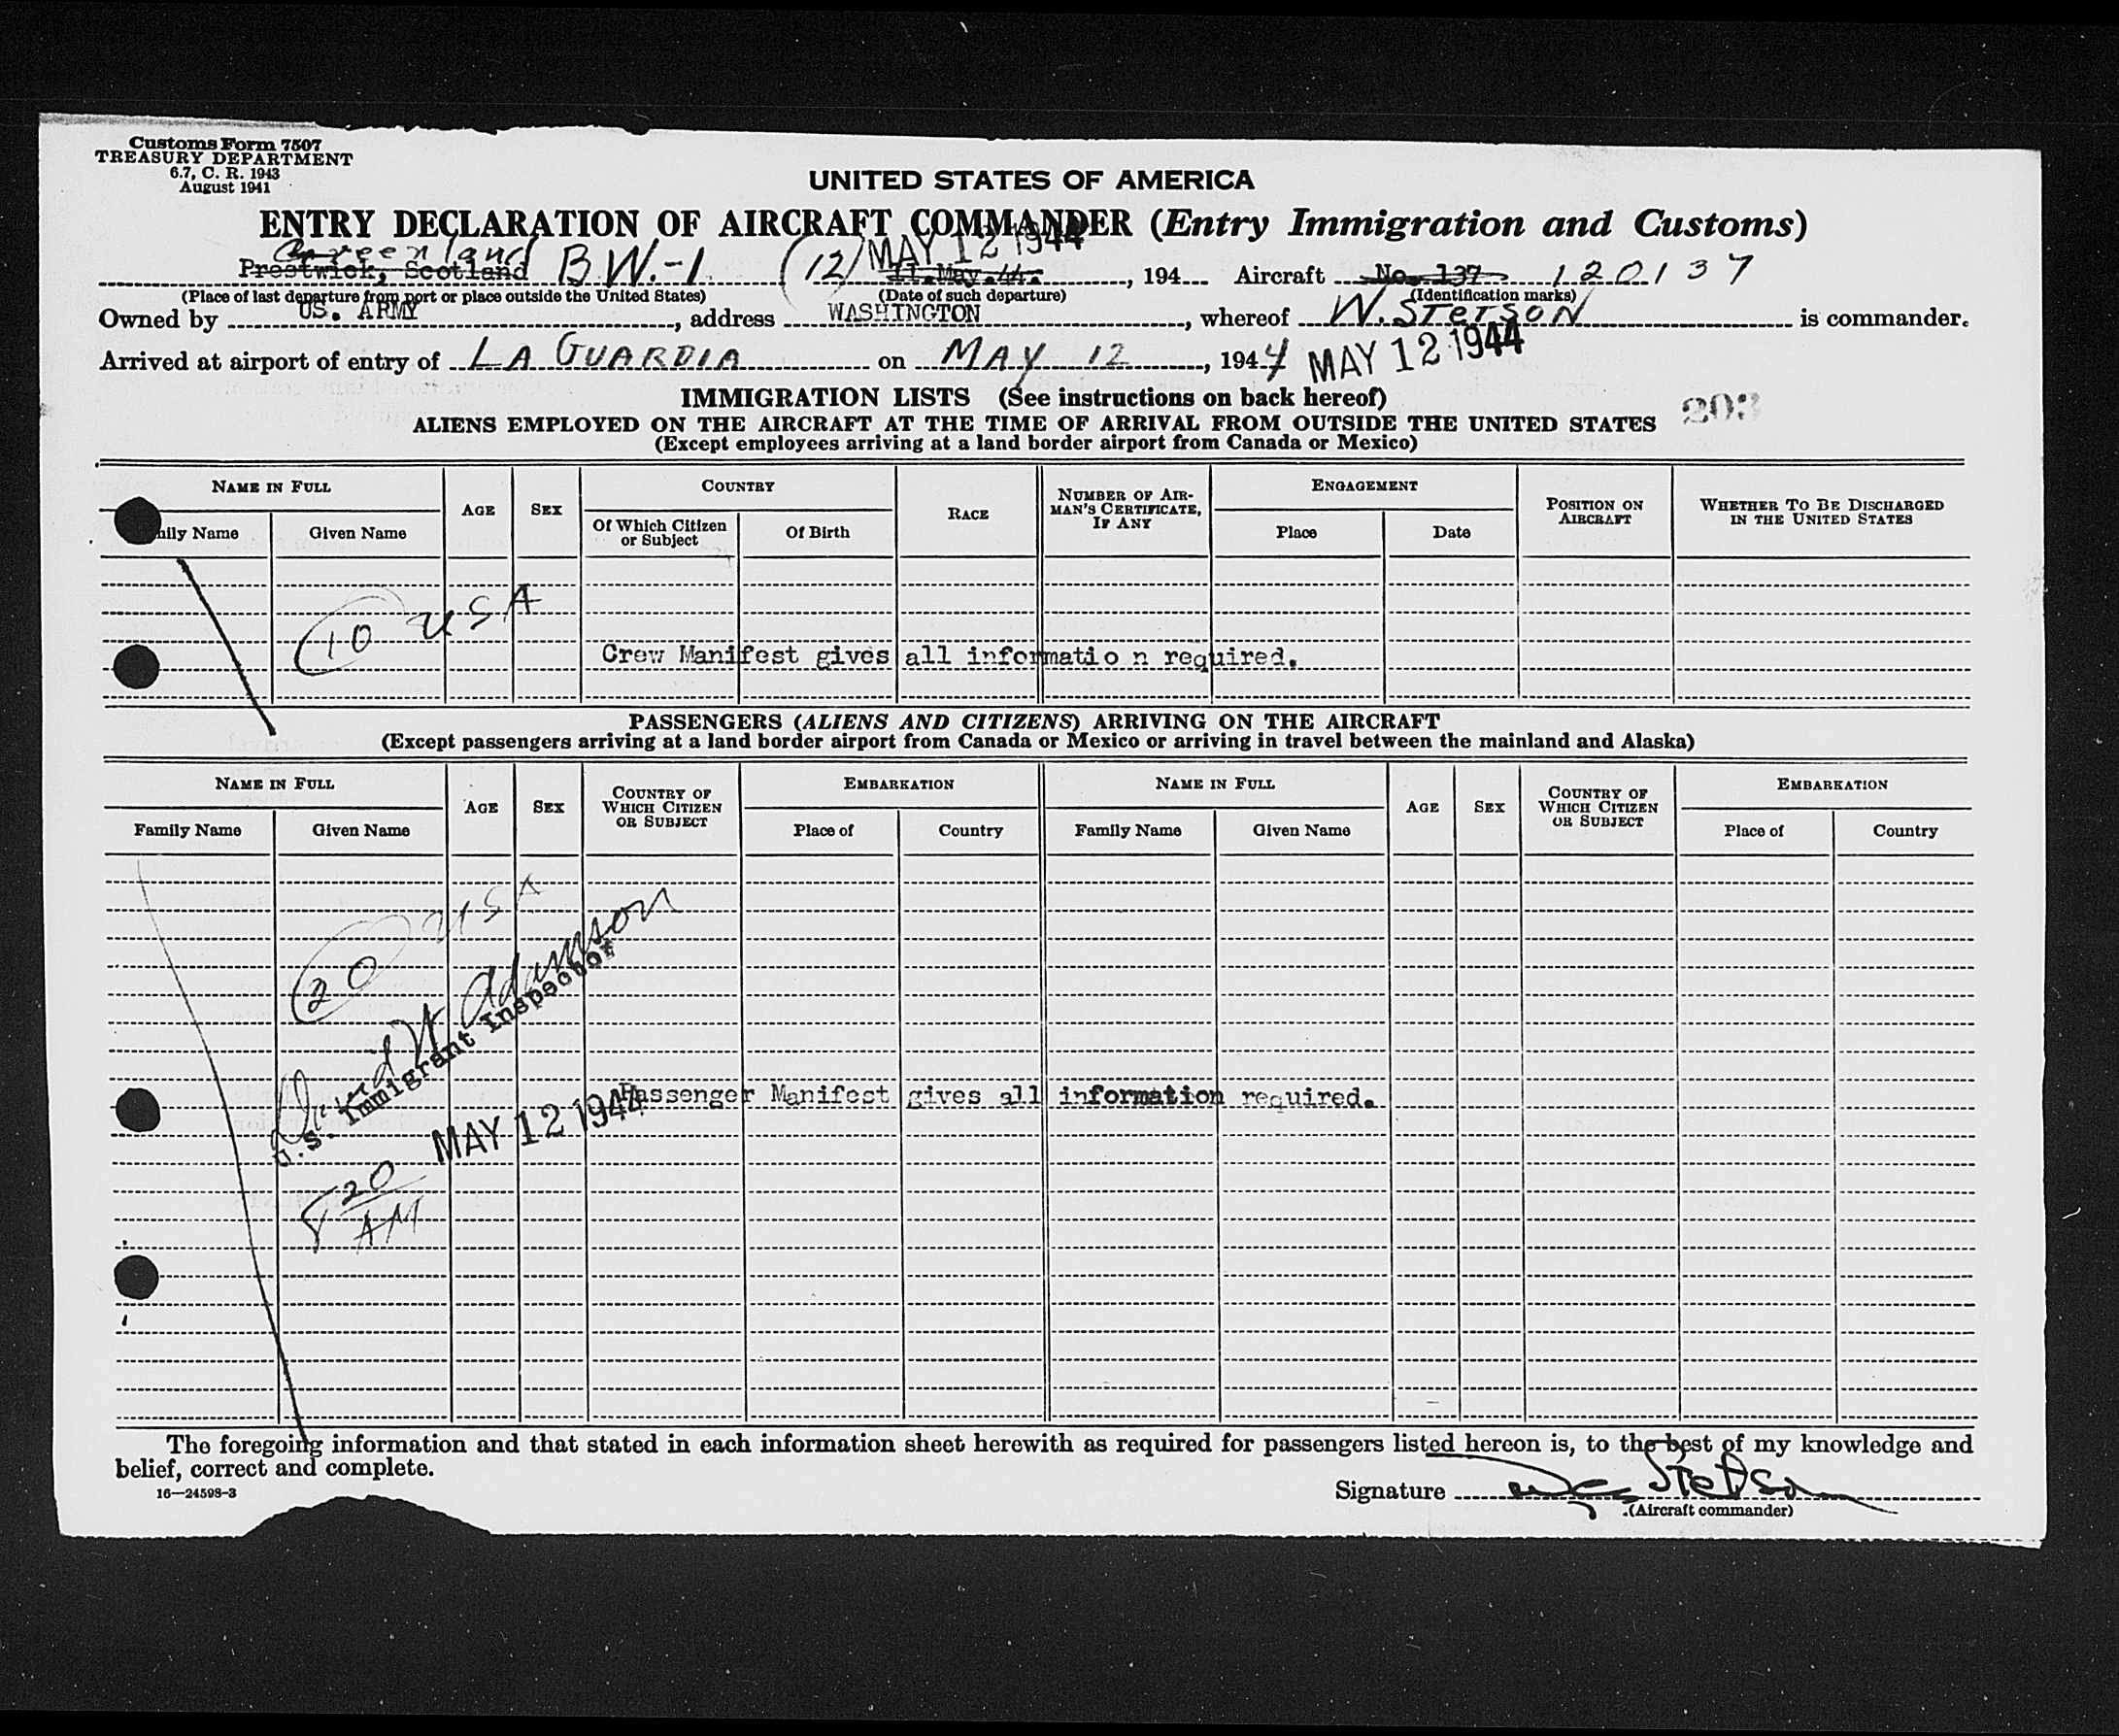 Customs Form 7507
TREASURY DEPARTMENT
6.7, C. R. 1943
August 1941
UNITED STATES OF AMERICA
ENTRY DECLARATION OF AIRCRAFT COMMANDER (Entry Immigration and Customs)
Greenland MAY 12 1944
Prestwick, Scotland B W.-1 (12) 11 May 44. , 194 Aircraft No. 137 120137
(Place of last departure from port or place outside the United States) (Date of such departure) (Identification marks)
Owned by US. ARMY , address WASHINGTON , whereof W. STETSON is commander.
Arrived at airport of entry of LA GUARDIA on MAY 12 , 1944 MAY 12 1944
IMMIGRATION LISTS (See instructions on back hereof)
203
ALIENS EMPLOYED ON THE AIRCRAFT AT THE TIME OF ARRIVAL FROM OUTSIDE THE UNITED STATES
(Except employees arriving at a land border airport from Canada or Mexico)
NAME IN FULL AGE SEX COUNTRY RACE NUMBER OF AIR-MAN'S CERTIFICATE, IF ANY ENGAGEMENT POSITION ON AIRCRAFT WHETHER TO BE DISCHARGED IN THE UNITED STATES
mily Name Given Name Of Which Citizen or Subject Of Birth Place Date
10 USA
Crew Manifest gives all informatio n required.
PASSENGERS (ALIENS AND CITIZENS) ARRIVING ON THE AIRCRAFT
(Except passengers arriving at a land border airport from Canada or Mexico or arriving in travel between the mainland and Alaska)
NAME IN FULL AGE SEX COUNTRY OF WHICH CITIZEN OR SUBJECT EMBARKATION NAME IN FULL AGE SEX COUNTRY OF WHICH CITIZEN OR SUBJECT EMBARKATION
Family Name Given Name Place of Country Family Name Given Name Place of Country
20 USA
David W Adamson
U.S. Immigrant Inspector
Passenger Manifest gives all information required.
MAY 12 1944
8 20 AM
The foregoing information and that stated in each information sheet herewith as required for passengers listed hereon is, to the best of my knowledge and
belief, correct and complete.
16—24598-3
Signature W Stetson
(Aircraft commander)